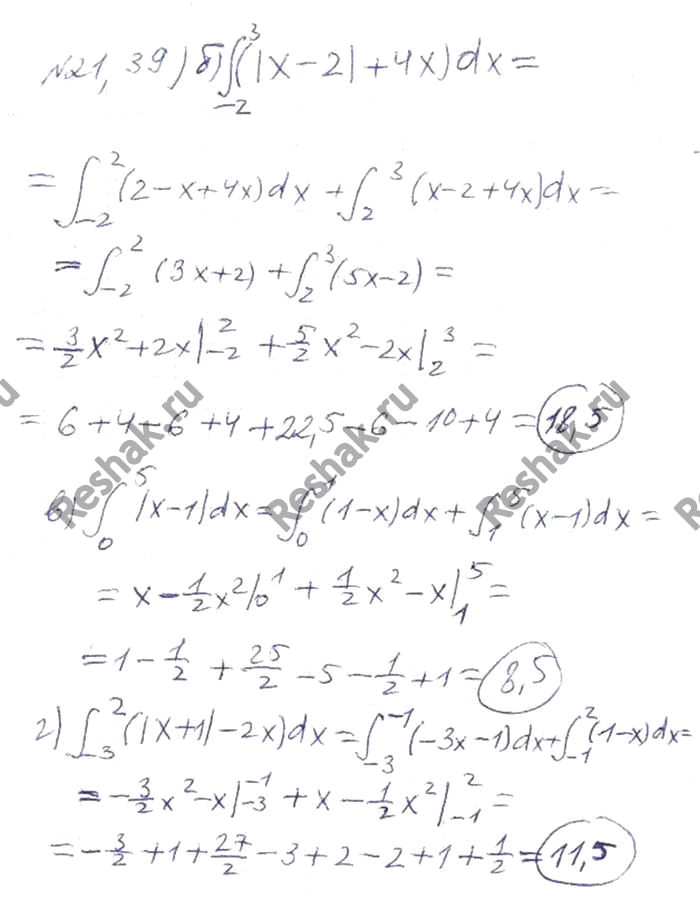 №21, 39) б) ∫₋₂³ (|x-2|+4x)dx =
= ∫₋₂² (2-x+4x)dx + ∫₂³ (x-2+4x)dx =
= ∫₋₂² (3x+2) + ∫₂³ (5x-2) =
= 3/2 x² + 2x |₋₂² + 5/2 x² - 2x |₂³ =
= 6+4-6+4+22,5-6-10+4 = 18,5
в) ∫₀⁵ |x-1|dx = ∫₀¹ (1-x)dx + ∫₁⁵ (x-1)dx =
= x - 1/2 x² |₀¹ + 1/2 x² - x |₁⁵ =
= 1 - 1/2 + 25/2 - 5 - 1/2 + 1 = 8,5
г) ∫₋₃² (|x+1| - 2x)dx = ∫₋₃⁻¹ (-3x-1)dx + ∫₋₁² (1-x)dx =
= - 3/2 x² - x |₋₃⁻¹ + x - 1/2 x² |₋₁² =
= - 3/2 + 1 + 27/2 - 3 + 2 - 2 + 1 + 1/2 = 11,5
Reshak.ru
Reshak.ru
Reshak.ru
Reshak.ru
Reshak.ru
Reshak.ru